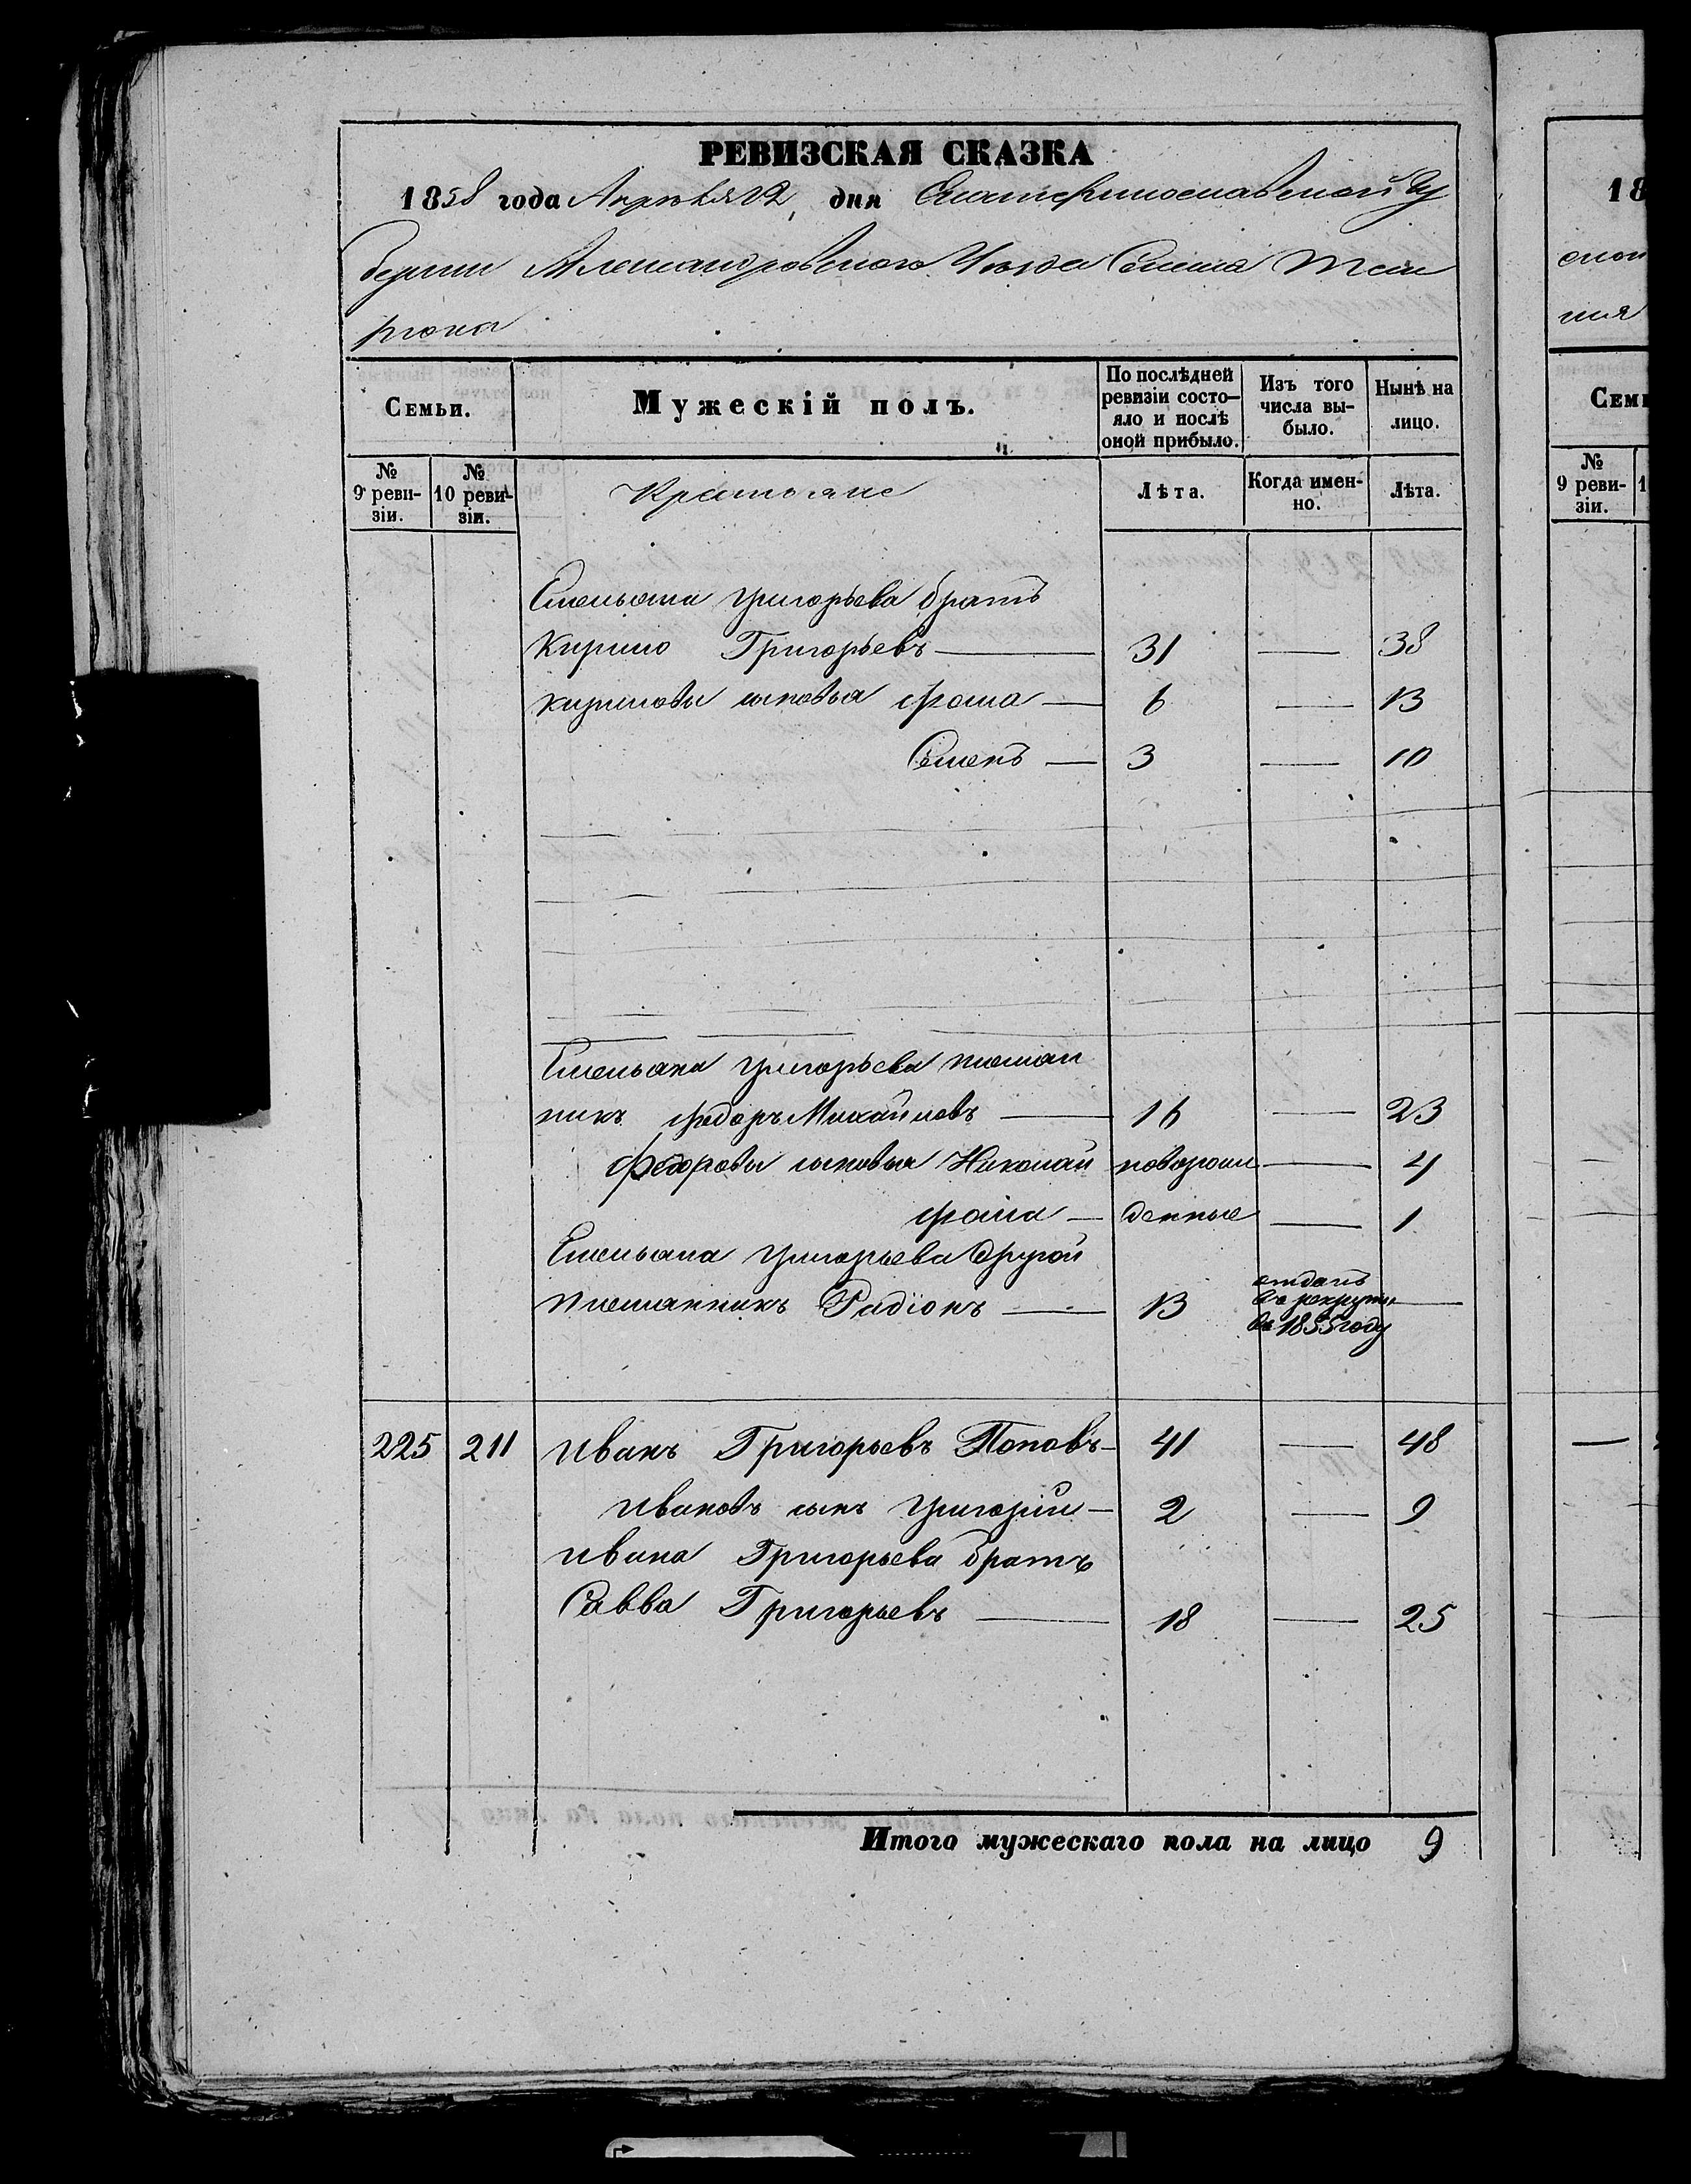 РЕВИЗСКАЯ СКАЗКА
1858 года Апреля 22 дня Екатеринославской Гу
берніи Александровскаго Уезда Селенія
Семьи. Мужескій полъ. По послѣдней ревизіи состо- яло и послѣ оной прибыло. Изъ того числа вы- было. Нынѣ на лицо.
№ 9 реви- зіи. № 10 реви- зіи. Крестьяне Лѣта. Когда имен- но. Лѣта.
Емельяна Григорьева братъ
Кирило Григорьевъ — 31 — 38
Кириловы сыновья Фома — 6 — 13
Семенъ — 3 — 10
Емельяна Григорьева племян
никъ Федоръ Михайловъ — 16 — 23
Федоровы сыновья Николай новорож — 4
Фома — денные — 1
Емельяна Григорьева другой
племянникъ Радіонъ — 13 отданъ въ рекруты въ 1855 году —
225 211 Иванъ Григорьевъ Поповъ — 41 — 48
Ивановъ сынъ Григорій — 2 — 9
Ивана Григорьева братъ
Савва Григорьевъ — 18 — 25
Итого мужескаго пола на лицо 9
18
Семь
№ 9 реви- зіи. 1